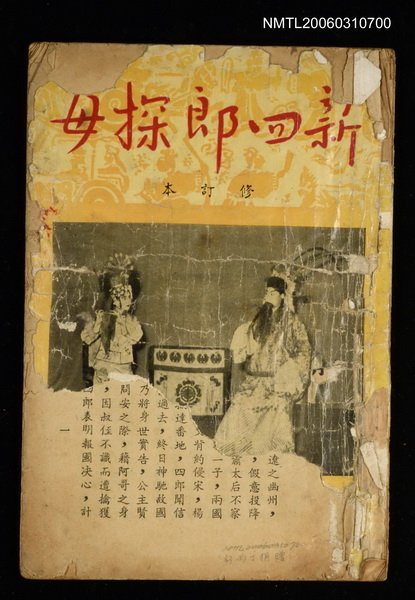 NMTL20060310700
新四郎探母
修訂本
遼之幽州，
，假意投降
蕭太后不察
一子，兩國
背約侵宋，楊
達番地，四郎聞信
過去，終日神馳故國
乃將身世實告，公主賢
問安之際，藉阿哥之身
，因叔侄不識而遭擒獲
四郎表明報國決心，計
一